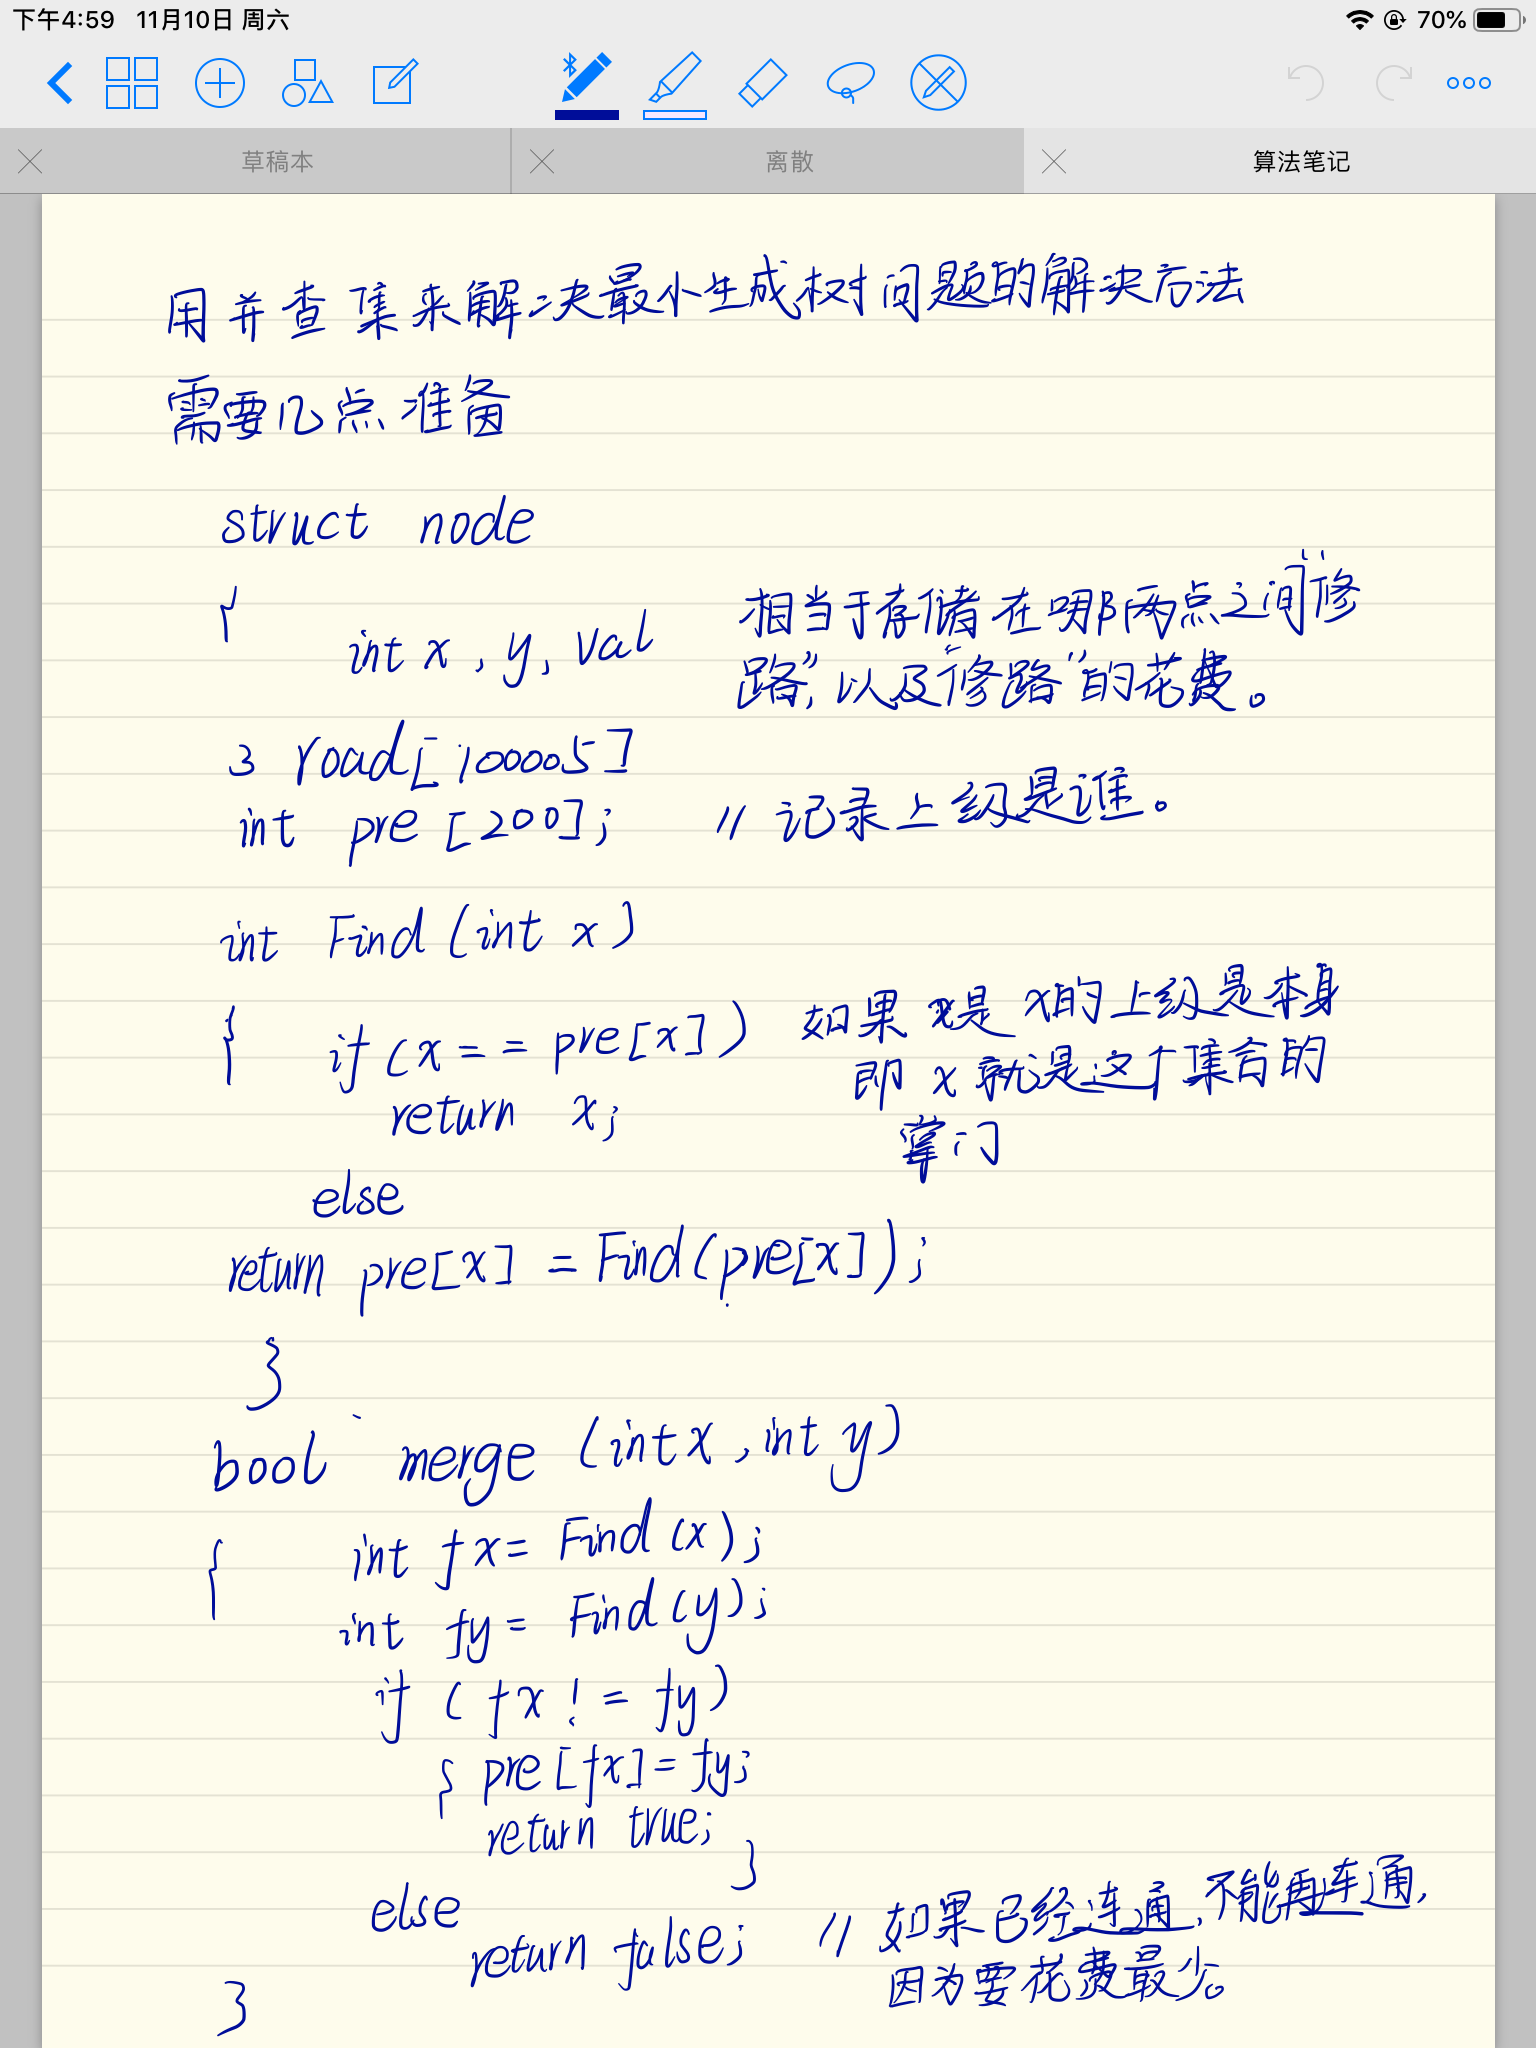 下午4:59 11月10日 周六 70%
草稿本 离散 算法笔记
用并查集来解决最小生成树问题的解决方法
需要几点准备
struct node
{
int x, y, val 相当于存储在哪两点之间“修
路”,以及“修路”的花费。
} road[100005]
int pre [200]; // 记录上级是谁。
int Find (int x)
{ if (x == pre[x]) 如果 x是 x的上级是本身
return x; 即 x 就是这个集合的
掌门
else
return pre[x] = Find(pre[x]);
}
bool merge (int x, int y)
{ int fx = Find (x);
int fy = Find (y);
if ( fx != fy)
{ pre [fx] = fy;
return true; }
else
return false; // 如果已经连通,不能再连通,
因为要花费最少。
}